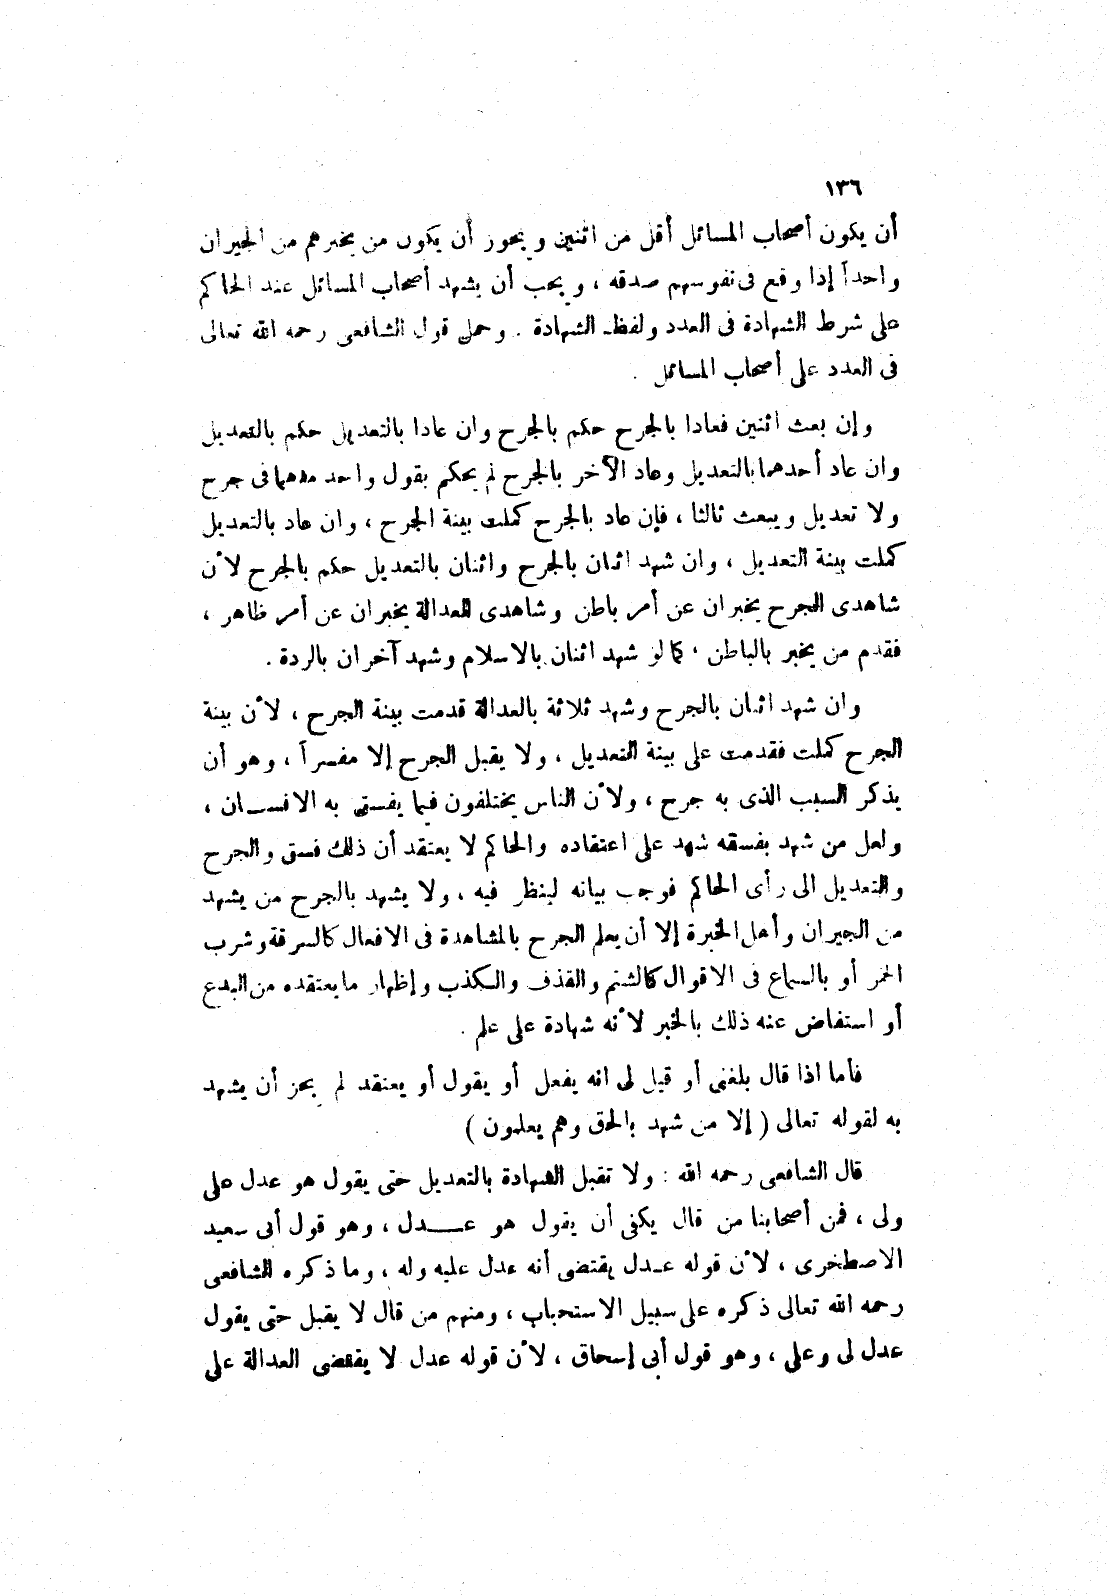 ١٣٦
أن يكون أصحاب المسائل أقل من اثنين ويجوز أن يكون من يخبرهم من الجيران
واحداً إذا وقع فى نفوسهم صدقه ، ويجب أن يشهد أصحاب المسائل عند الحاكم
على شرط الشهادة فى العدد ولفظ الشهادة . وحمل قول الشافعى رحمه الله تعالى
فى العدد على أصحاب المسائل .
وإن بعث اثنين فعادا بالجرح حكم بالجرح وان عادا بالتعديل حكم بالتعديل
وان عاد أحدهما بالتعديل وعاد الآخر بالجرح لم يحكم بقول واحد منهما فى جرح
ولا تعديل ويبعث ثالثا ، فإن عاد بالجرح كملت بينة الجرح ، وان عاد بالتعديل
كملت بينة التعديل ، وان شهد اثنان بالجرح واثنان بالتعديل حكم بالجرح لأن
شاهدى الجرح يخبران عن أمر باطن وشاهدى العدالة يخبران عن أمر ظاهر ،
فقدم من يخبر بالباطن ، كما لو شهد اثنان بالاسلام وشهد آخران بالردة .
وان شهد اثنان بالجرح وشهد ثلاثة بالعدالة قدمت بينة الجرح ، لأن بينة
الجرح كملت فقدمت على بينة التعديل ، ولا يقبل الجرح إلا مفسراً ، وهو أن
يذكر السبب الذى به جرح ، ولأن الناس يختلفون فيما يفسق به الانسان ،
ولعل من شهد بفسقه شهد على اعتقاده والحاكم لا يعتقد أن ذلك فسق والجرح
والتعديل الى رأى الحاكم فوجب بيانه لينظر فيه ، ولا يشهد بالجرح من يشهد
من الجيران وأهل الخبرة إلا أن يعلم الجرح بالمشاهدة فى الافعال كالسرقة وشرب
الخمر أو بالسماع فى الاقوال كالشتم والقذف والكذب وإظهار ما يعتقده من البدع
أو استفاض عنه ذلك بالخبر لأنه شهادة على علم .
فأما اذا قال بلغنى أو قيل لى انه يفعل أو يقول أو يعتقد لم يجز أن يشهد
به لقوله تعالى ( إلا من شهد بالحق وهم يعلمون )
قال الشافعى رحمه الله : ولا تقبل الشهادة بالتعديل حتى يقول هو عدل على
ولى ، فمن أصحابنا من قال يكفى أن يقول هو عدل ، وهو قول أبى سعيد
الاصطخرى ، لأن قوله عدل يقتضى أنه عدل عليه وله ، وما ذكره الشافعى
رحمه الله تعالى ذكره على سبيل الاستحباب ، ومنهم من قال لا يقبل حتى يقول
عدل لى وعلى ، وهو قول أبى إسحاق ، لأن قوله عدل لا يقتضى العدالة على